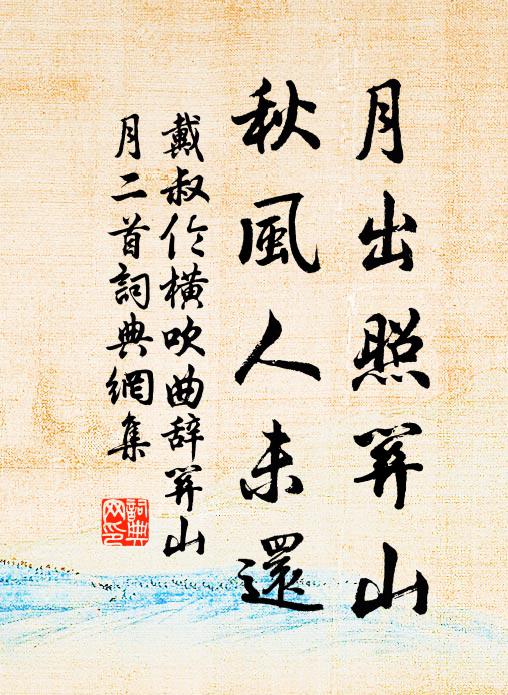 月出照關山
秋風人未還
戴叔伦横吹曲辞關山
月二首詞典網集
詞典
网印